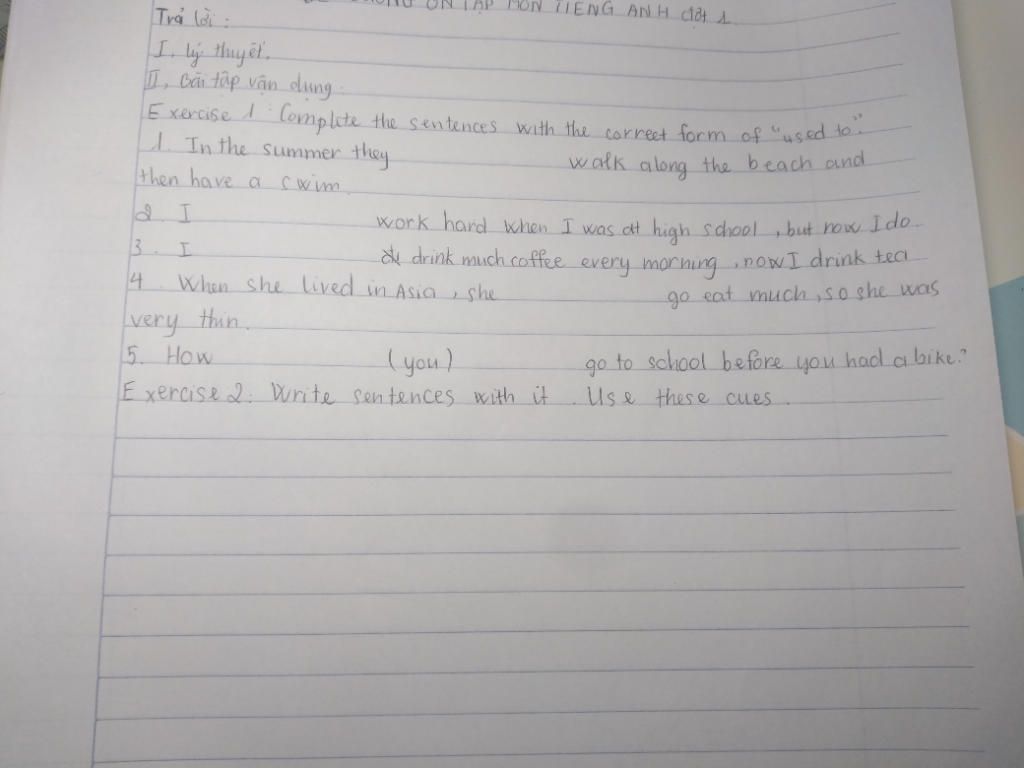 ÔN TẬP MÔN TIẾNG ANH đợt 1
Trả lời :
I, lý thuyết.
II, Bài tập vận dụng.
Exercise 1 : Complete the sentences with the correct form of "used to".
1. In the summer they walk along the beach and
then have a swim.
2. I work hard when I was at high school , but now I do.
3. I drink much coffee every morning , now I drink tea
4. When she lived in Asia , she go eat much , so she was
very thin.
5. How (you) go to school before you had a bike?
Exercise 2: Write sentences with it . Use these cues .